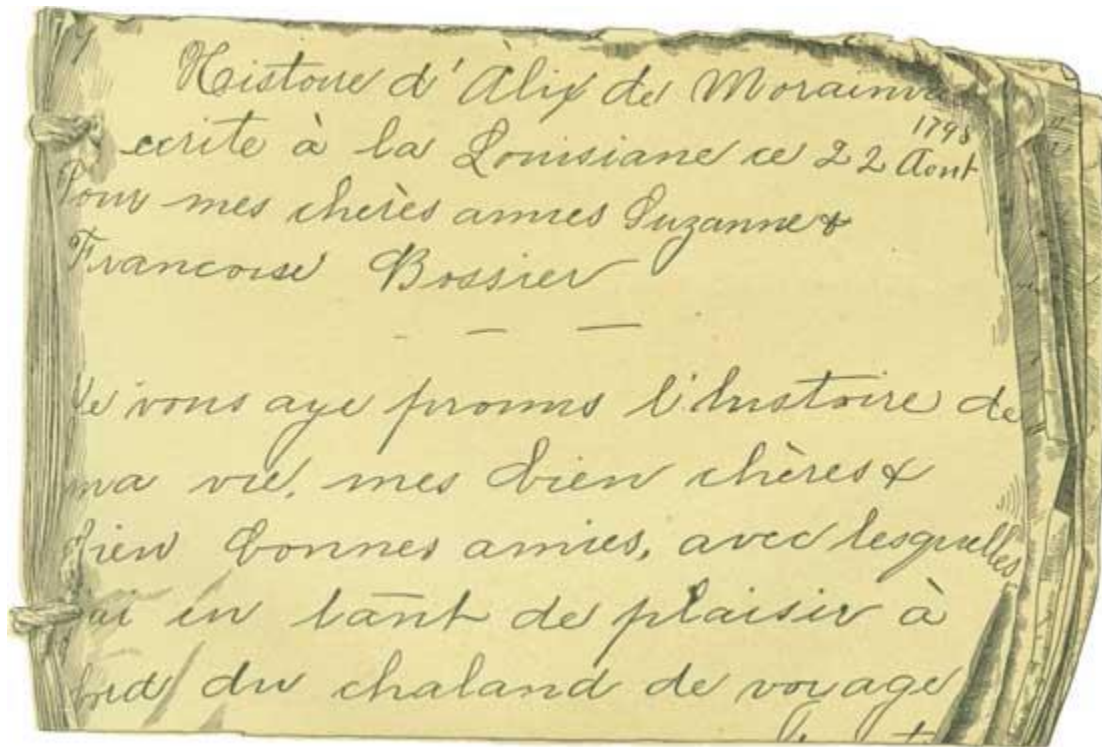 Histoire d'Alix de Morainvi
1798
ecrite à la Louisiane ce 22 Aout
Pour mes chères amies Suzanne &
Francoise Bossier
Je vous aye promis l'histoire de
ma vie, mes bien chères &
bien bonnes amies, avec lesquelles
j'ai eu tant de plaisir à
bord du chaland de voyage